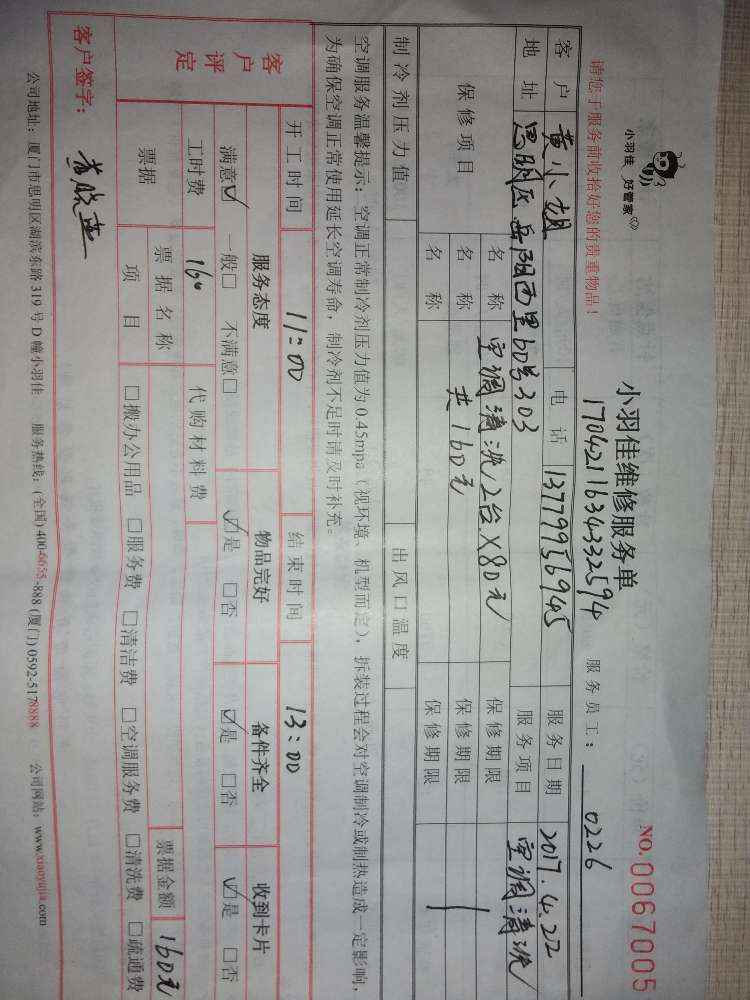 小羽佳 好管家
小羽佳维修服务单
NO.0067005
请您于服务前收拾好您的贵重物品!
1704211634332594
服务员工: 0226
客户 黄小姐 电话 13779956945 服务日期 2017.4.22
地址 思明区岳阳西里60号303 服务项目 空调清洗
保修项目 名称 空调清洗2台×80元 保修期限
名称 共160元 保修期限
名称 保修期限
制冷剂压力值 出风口温度
空调服务温馨提示:空调正常制冷剂压力值为0.45mpa(视环境、机型而定),拆装过程会对空调制冷或制热造成一定影响,
为确保空调正常使用延长空调寿命,制冷剂不足时请及时补充。
开工时间 11:00 结束时间 13:00
客户评定 服务态度 物品完好 备件齐全 收到卡片
满意☑ 一般□ 不满意□ ☑是 □否 ☑是 □否 ☑是 □否
工时费 160 代购材料费
票据 票据名称 票据金额 160元
项目 □搬办公用品 □服务费 □清洁费 □空调服务费 □清洗费 □疏通费
客户签字:
公司地址:厦门市思明区湖滨东路319号D幢小羽佳 服务热线:(全国)400-6655-888(厦门)0592-5178888 公司网站:www.xiaoyujia.com